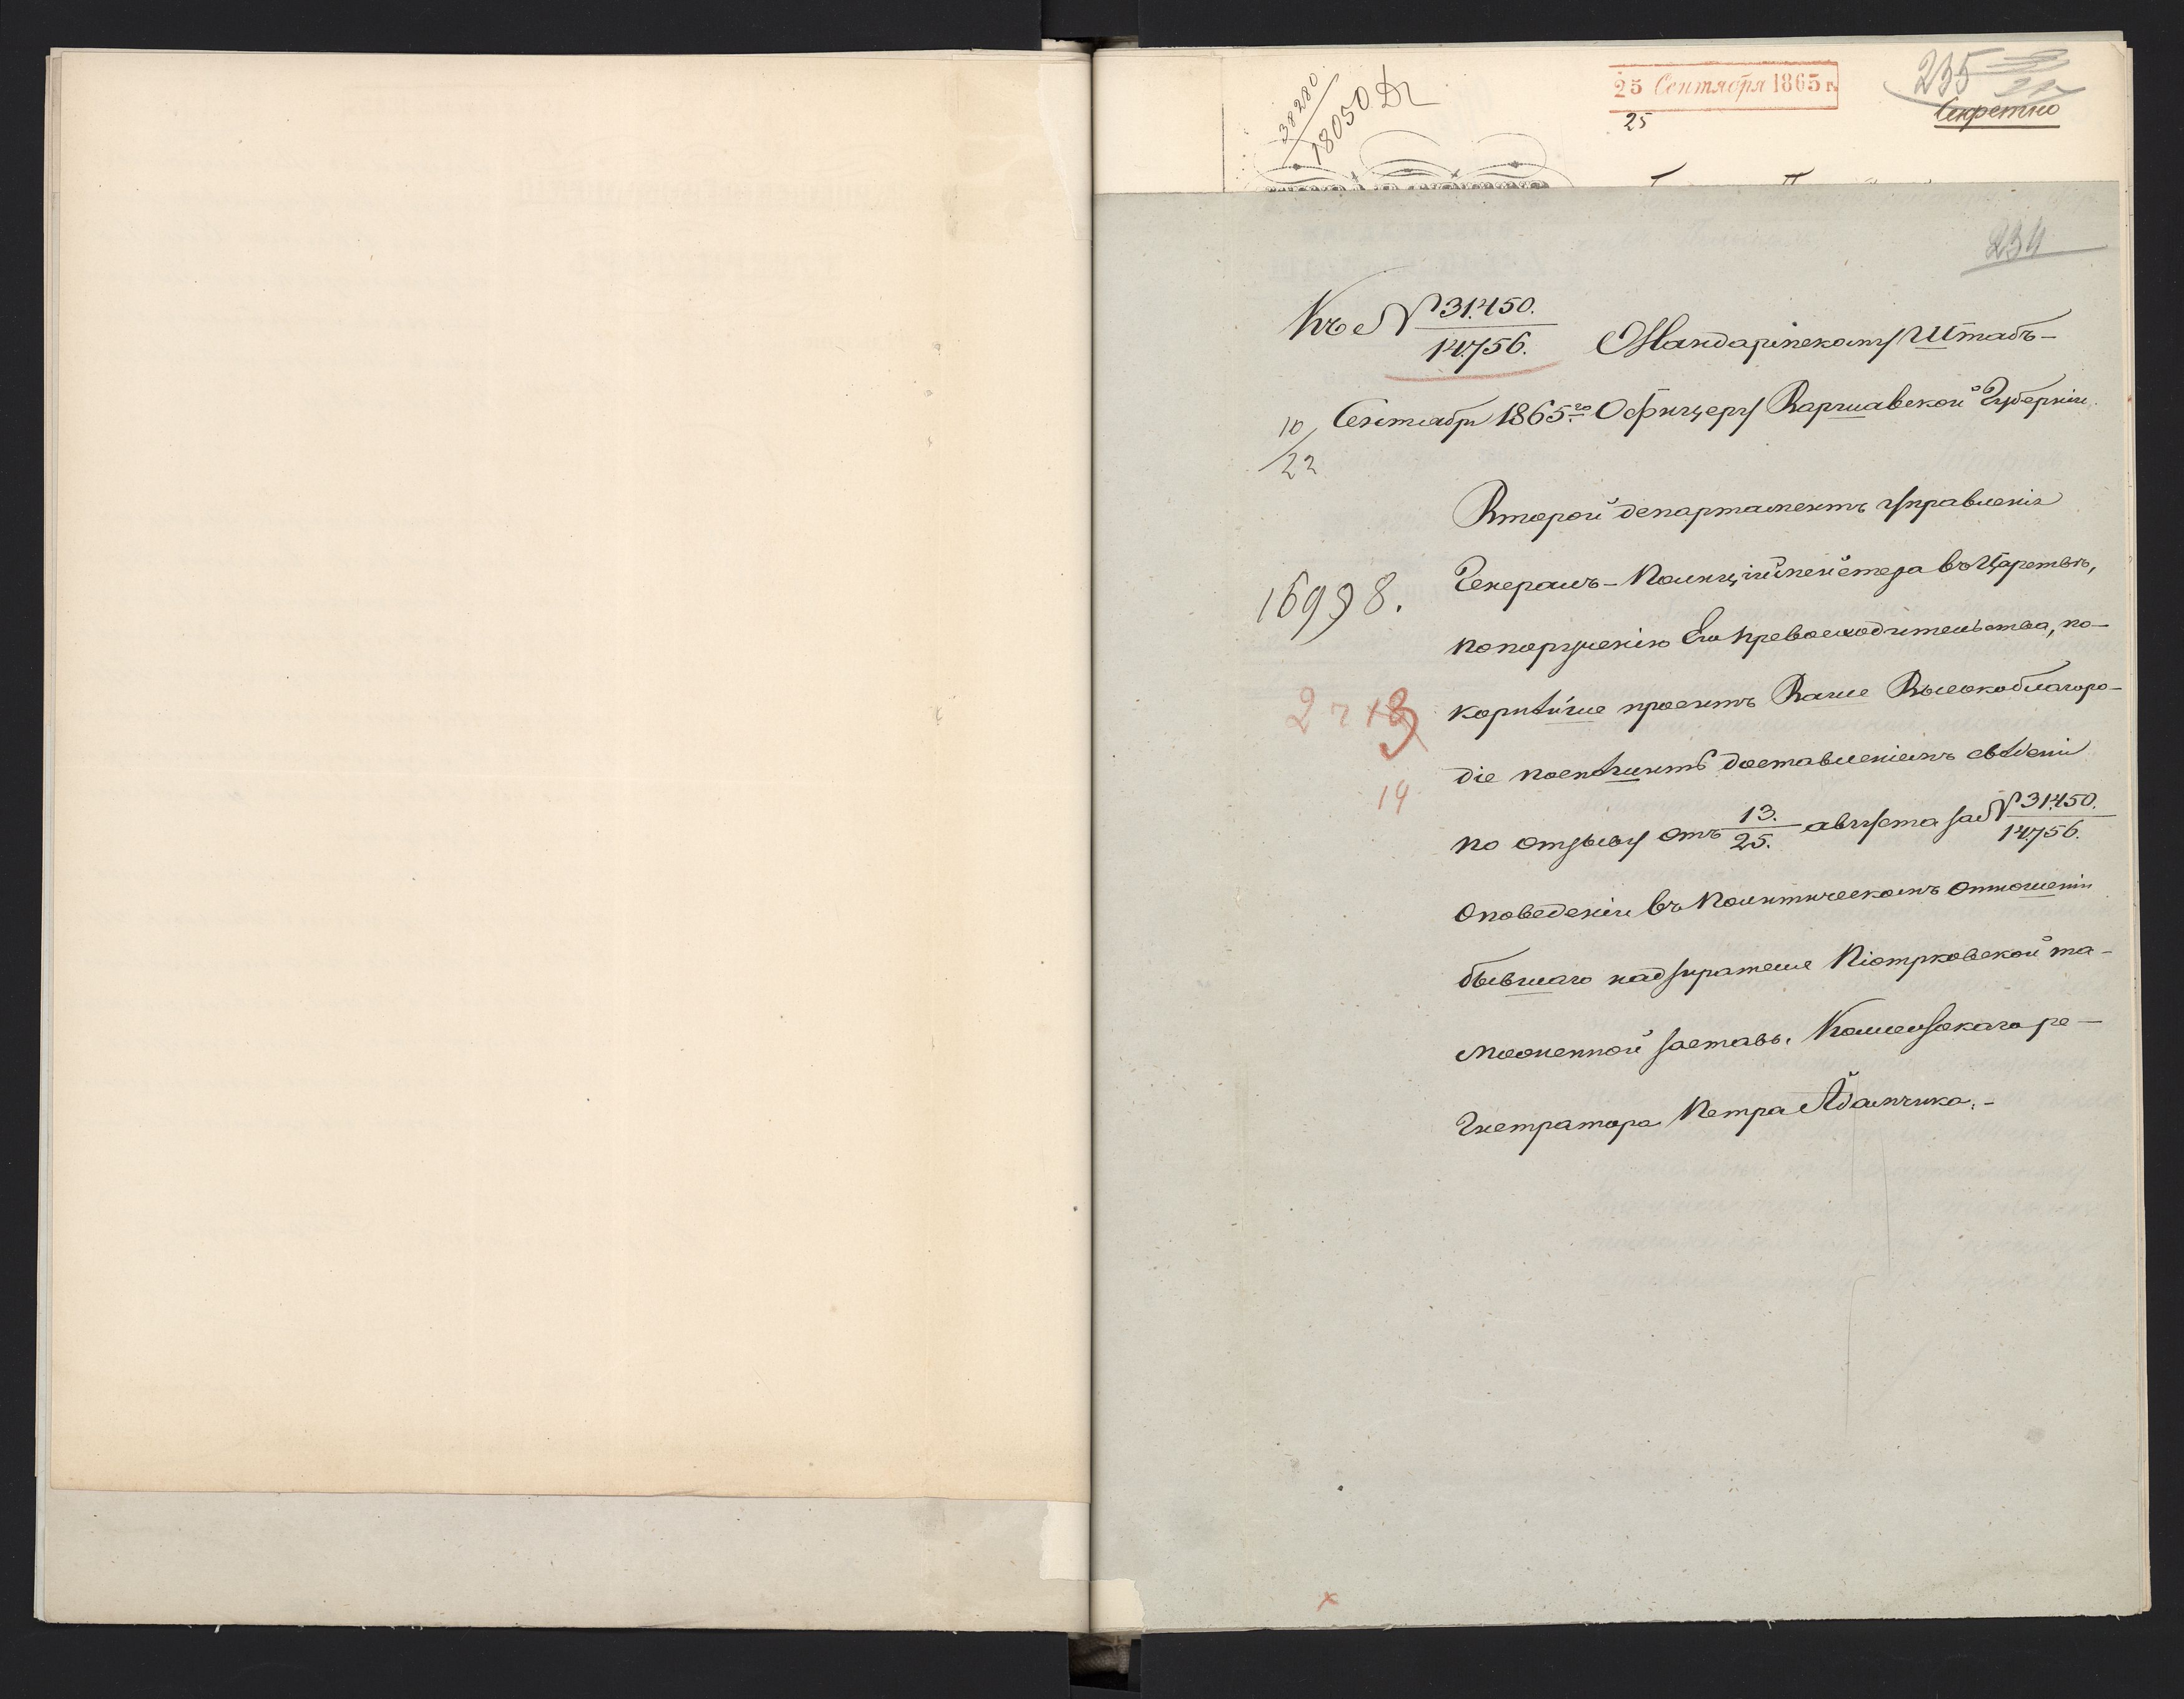 38280
18050 Дг
25 Сентября 1865 г.
25
235
Секретно
234
Къ № 31.450.
14.756.
Жандармскому Штабъ-
Сентября 1865 го Офицеру Варшавской Губерніи.
10
22
Второй департаментъ управленія
Генералъ-Полиціймейстера въ Царствѣ,
16998.
по порученію Его Превосходительства, по-
корнѣйше проситъ Ваше Высокоблагоро-
2 г
діе поспѣшить доставленіемъ свѣденій
14
по отзыву отъ 13./25. августа за № 31.450./14.756.
о поведеніи въ политическомъ отношеніи
бывшаго надзирателя Піотрковской та-
моженной заставы, Коллежскаго ре-
гистратора Петра Адамчика.-
х